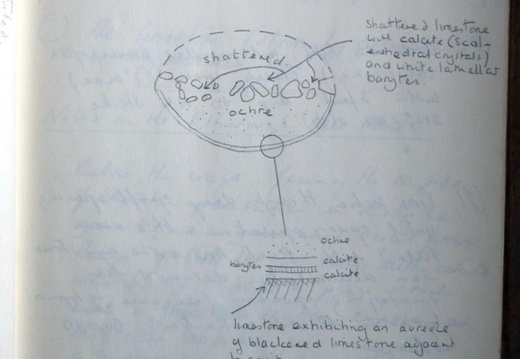 shattered limestone
with calcite (scal-
enohedral crystals)
and white lamellar
barytes.
shattered
ochre
ochre
barytes
calcite
calcite
limestone exhibiting an aureole
of blackened limestone adjacent